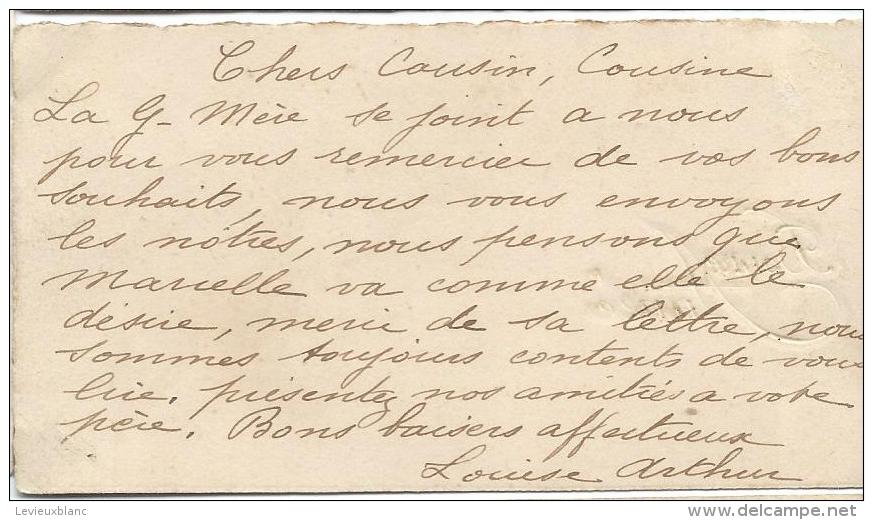 Chers Cousin, Cousine
La G-Mère se joint a nous
pour vous remercier de vos bons
souhaits, nous vous envoyons
les nôtres, nous pensons que
Marcelle va comme elle le
désire, merci de sa lettre, nous
sommes toujours contents de vous
lire. présentez nos amitiés a votre
père. Bons baisers affectueux
Louise Arthur
Levieuxblanc
www.delcampe.net